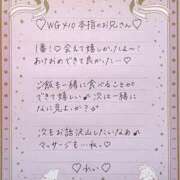 ♡WG×10 本指のお兄さん♡
1番に会えて嬉しかったよ〜!
あけおめできて良かった…♡
ご飯も一緒に食べることが
できて嬉しい♪次は一緒に
なに見よっか?
次もお話沢山したいなぁ♪
マッサージも…ね♡
♡れい♡